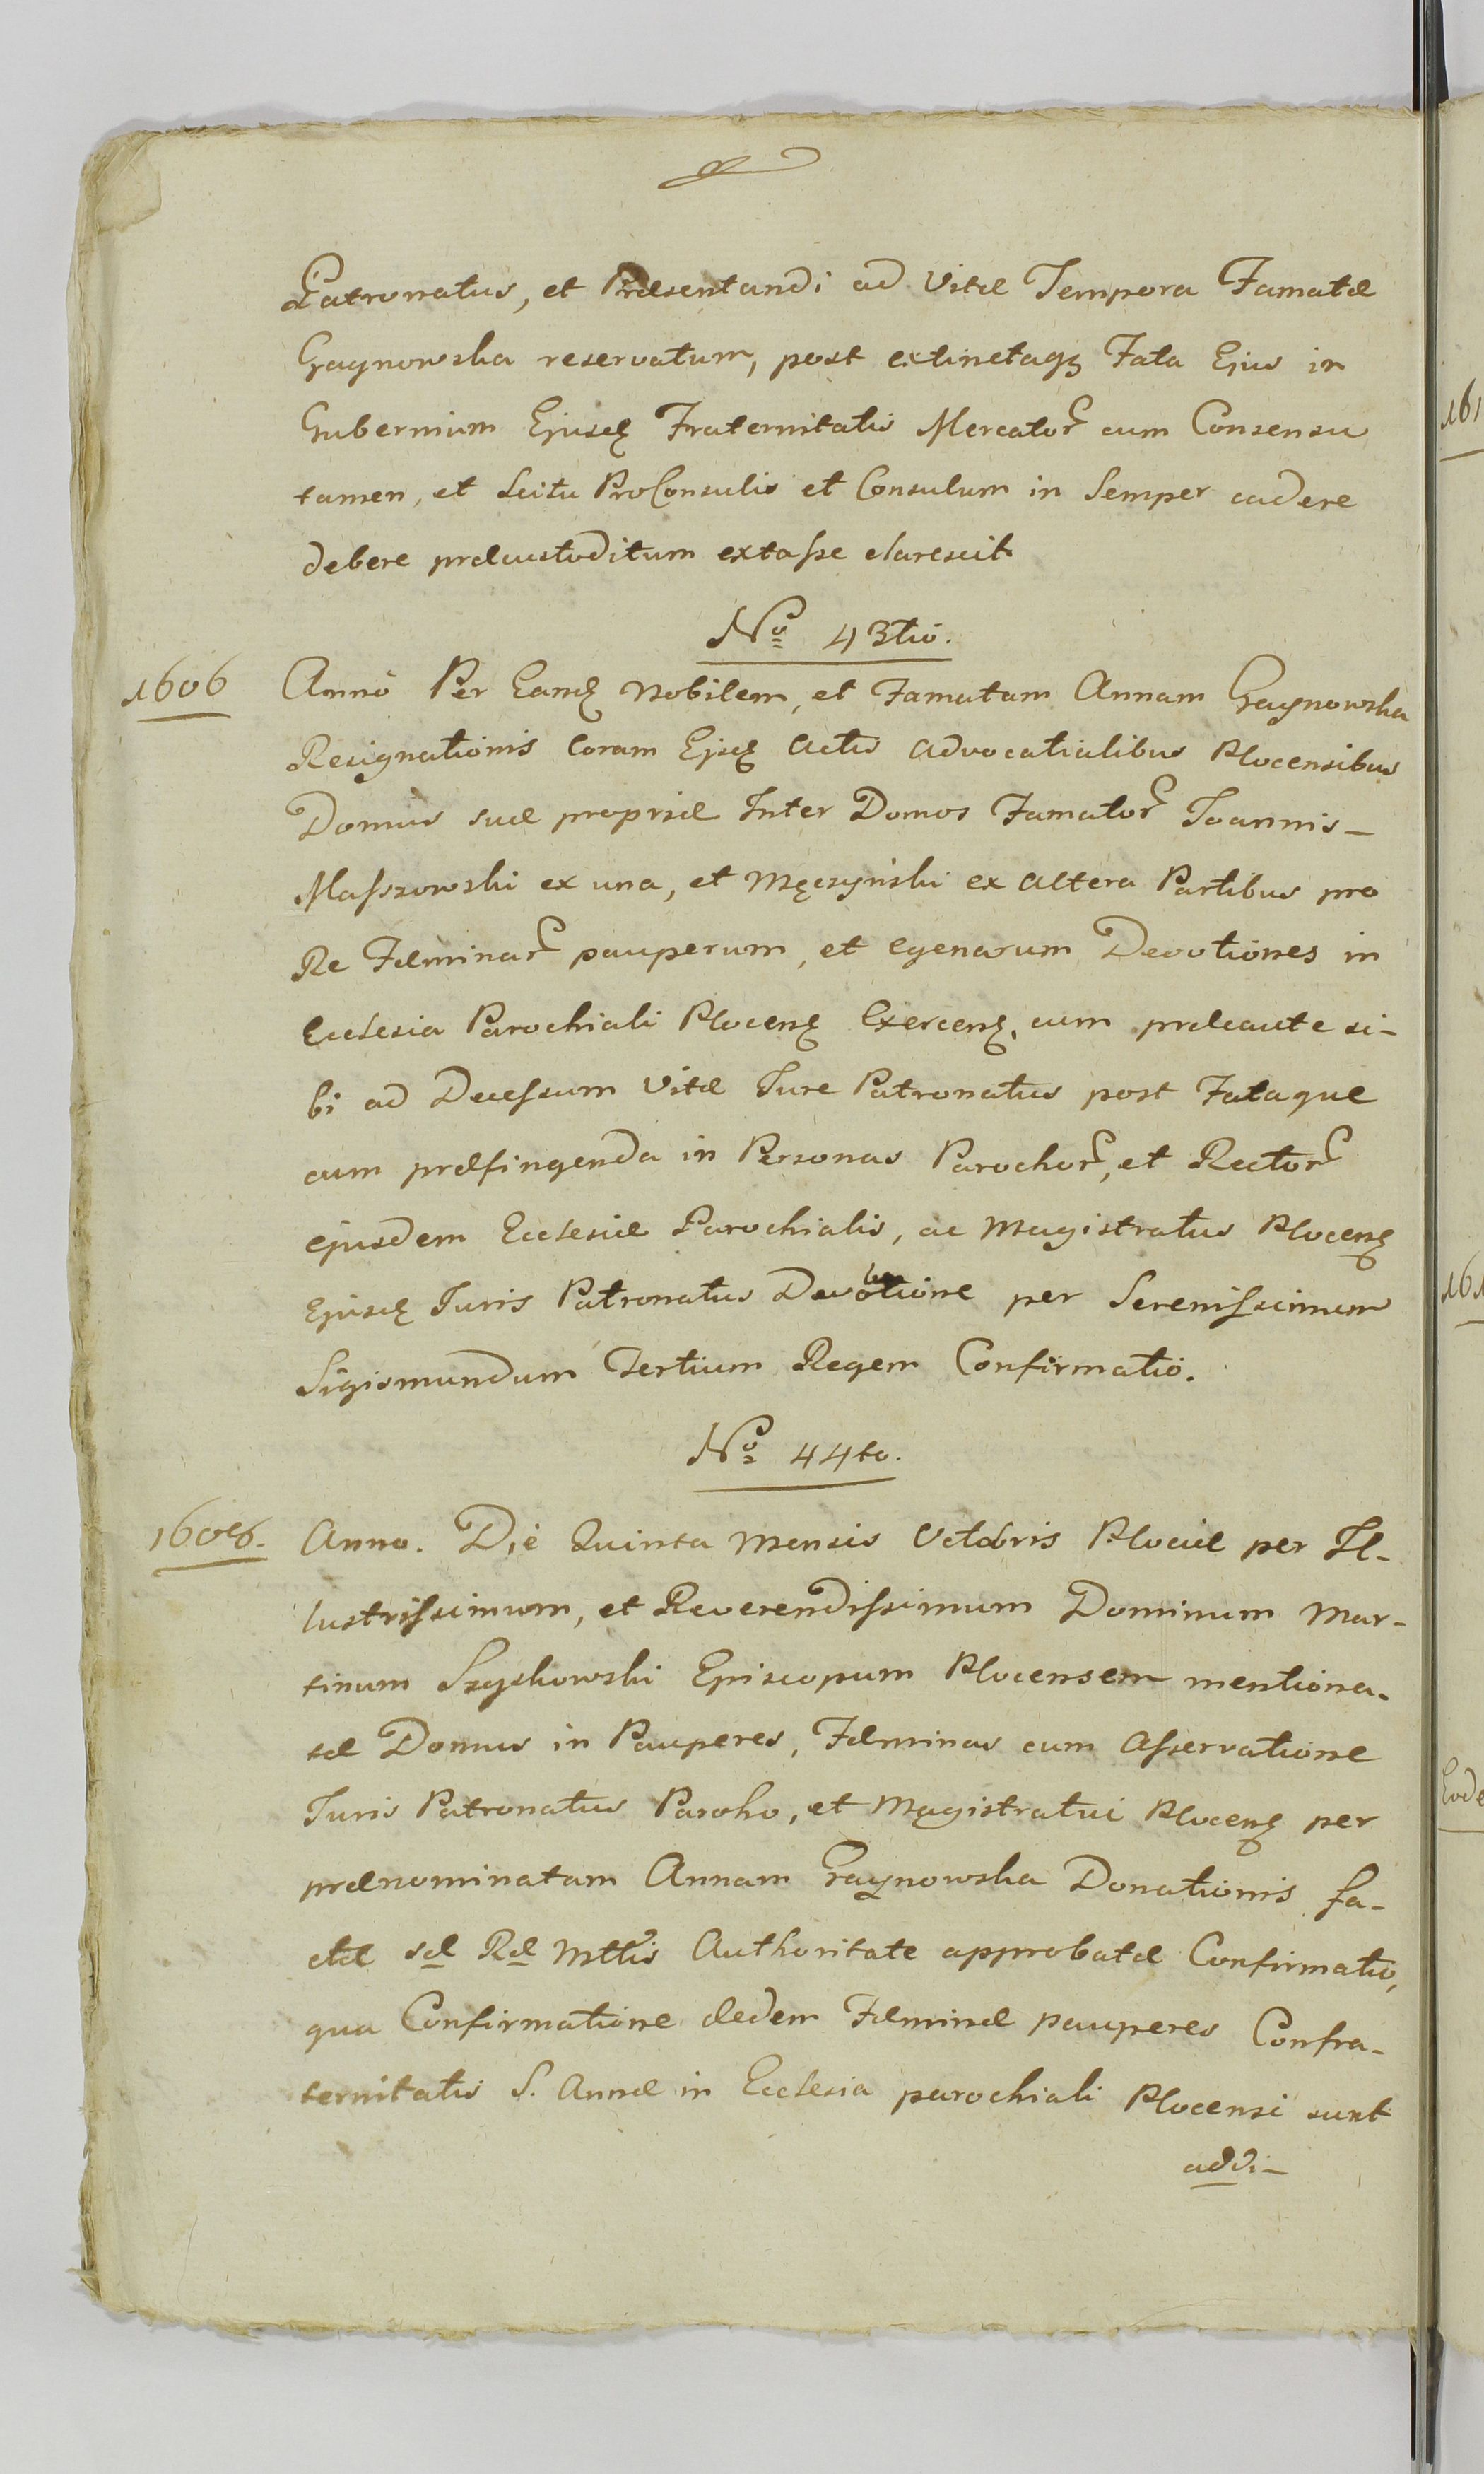 Patronatus, et Præsentandi ad Vitæ Tempora Famatæ
Gaynowska reservatum, post extinctaqꝫ Fata Ejus in
Gubernium Ejusđ Fraternitatis Mercatoꝝ cum Consensu
tamen, et Scitu ProConsulis et Consulum in Semper cadere
debere præcustoditum extaſse clarescit
Nº 43tio.
1606 Anno Per Eanđ Nobilem, et Famatam Annam Gaynowska
Resignationis Coram Ejsđ Actis Advocatialibus Plocensibus
Domus suæ propriæ Inter Domos Famatoꝝ Joannis
Maſszowski ex una, et Męczyński ex altera Partibus pro
Re Fæminaꝝ pauperum, et egenarum Devotiones in
Ecclesia Parochiali Plocenꝭ Exercenꝭ, cum præcaute si-
bi ad Deceſsum Vitæ Jure Patronatus post Fataque
cum præfingenda in Personas Parochoꝝ, et Rectoꝝ
ejusdem Ecclesiæ Parochialis, ac Magistratus Plocenꝭ
Ejusđ Juris Patronatus Devolutione per Sereniſsimum
Sigismundum Tertium Regem Confirmatio.
Nº 44to.
1606. Anno. Die Quinta Mensis Octobris Plociæ per Il-
lustriſsimum, et Reverendiſsimum Dominum Mar-
tinum Szyskowski Episcopum Plocensem mentiona-
tæ Domus in Pauperes, Fæminas cum Aſservatione
Juris Patronatus Paroho, et Magistratui Plocenꝭ per
prænominatam Annam Gaynowska Donationis fa-
ctæ sæ Ræ Mttis Authoritate approbatæ Confirmatio,
qua Confirmatione ædem Fæminæ pauperes Confra-
ternitatis S. Annæ in Ecclesia parochiali Plocensi sunt
addi-
161
161
Eode